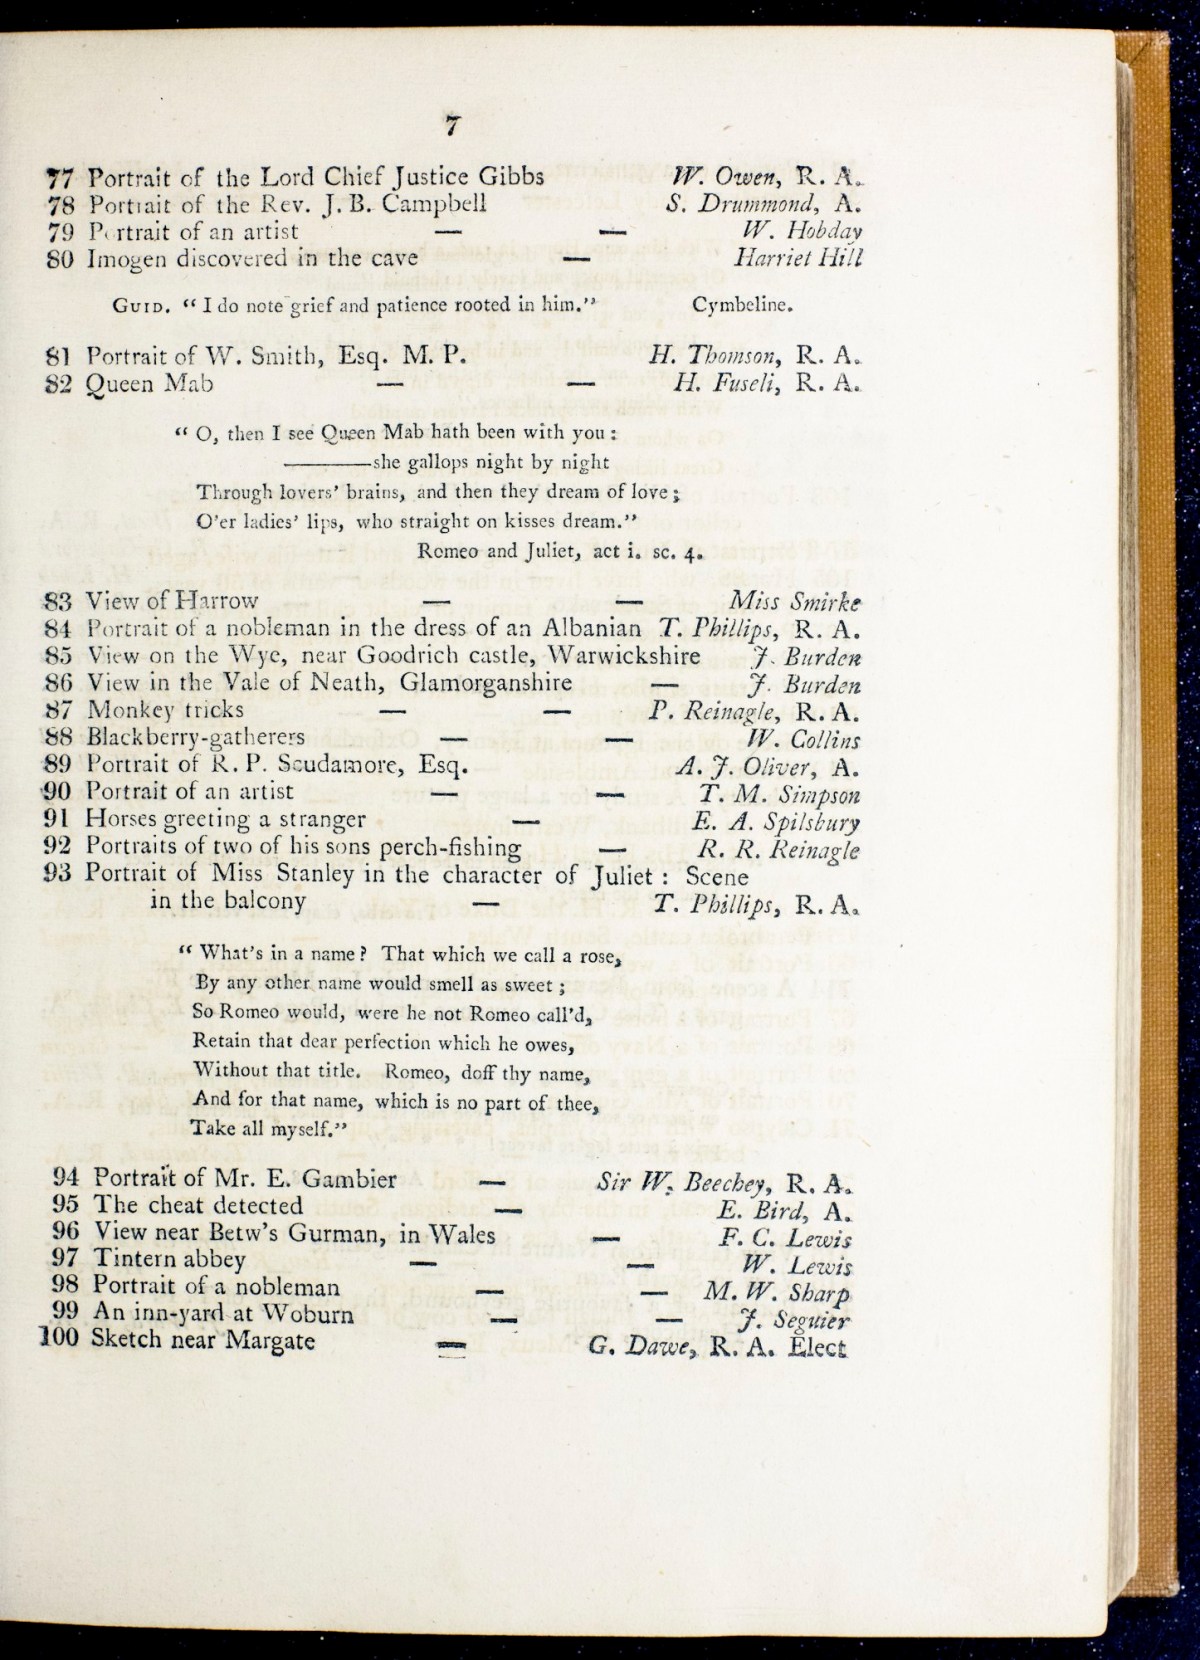 7
77 Portrait of the Lord Chief Justice Gibbs W. Owen, R. A.
78 Portrait of the Rev. J. B. Campbell S. Drummond, A.
79 Portrait of an artist — — W. Hobday
80 Imogen discovered in the cave — Harriet Hill
GUID. “ I do note grief and patience rooted in him.” Cymbeline.
81 Portrait of W. Smith, Esq. M. P. H. Thomson, R. A.
82 Queen Mab — — H. Fuseli, R. A.
“ O, then I see Queen Mab hath been with you :
———she gallops night by night
Through lovers’ brains, and then they dream of love ;
O’er ladies’ lips, who straight on kisses dream.”
Romeo and Juliet, act i. sc. 4.
83 View of Harrow — — Miss Smirke
84 Portrait of a nobleman in the dress of an Albanian T. Phillips, R. A.
85 View on the Wye, near Goodrich castle, Warwickshire J. Burden
86 View in the Vale of Neath, Glamorganshire — J. Burden
87 Monkey tricks — — P. Reinagle, R. A.
88 Blackberry-gatherers — — W. Collins
89 Portrait of R. P. Scudamore, Esq. A. J. Oliver, A.
90 Portrait of an artist — — T. M. Simpson
91 Horses greeting a stranger — E. A. Spilsbury
92 Portraits of two of his sons perch-fishing — R. R. Reinagle
93 Portrait of Miss Stanley in the character of Juliet : Scene
in the balcony — T. Phillips, R. A.
“ What’s in a name ? That which we call a rose,
By any other name would smell as sweet ;
So Romeo would, were he not Romeo call’d,
Retain that dear perfection which he owes,
Without that title. Romeo, doff thy name,
And for that name, which is no part of thee,
Take all myself.”
94 Portrait of Mr. E. Gambier — Sir W. Beechey, R. A.
95 The cheat detected — E. Bird, A.
96 View near Betw’s Gurman, in Wales — F. C. Lewis
97 Tintern abbey — — W. Lewis
98 Portrait of a nobleman — — M. W. Sharp
99 An inn-yard at Woburn — — J. Seguier
100 Sketch near Margate — G. Dawe, R. A. Elect